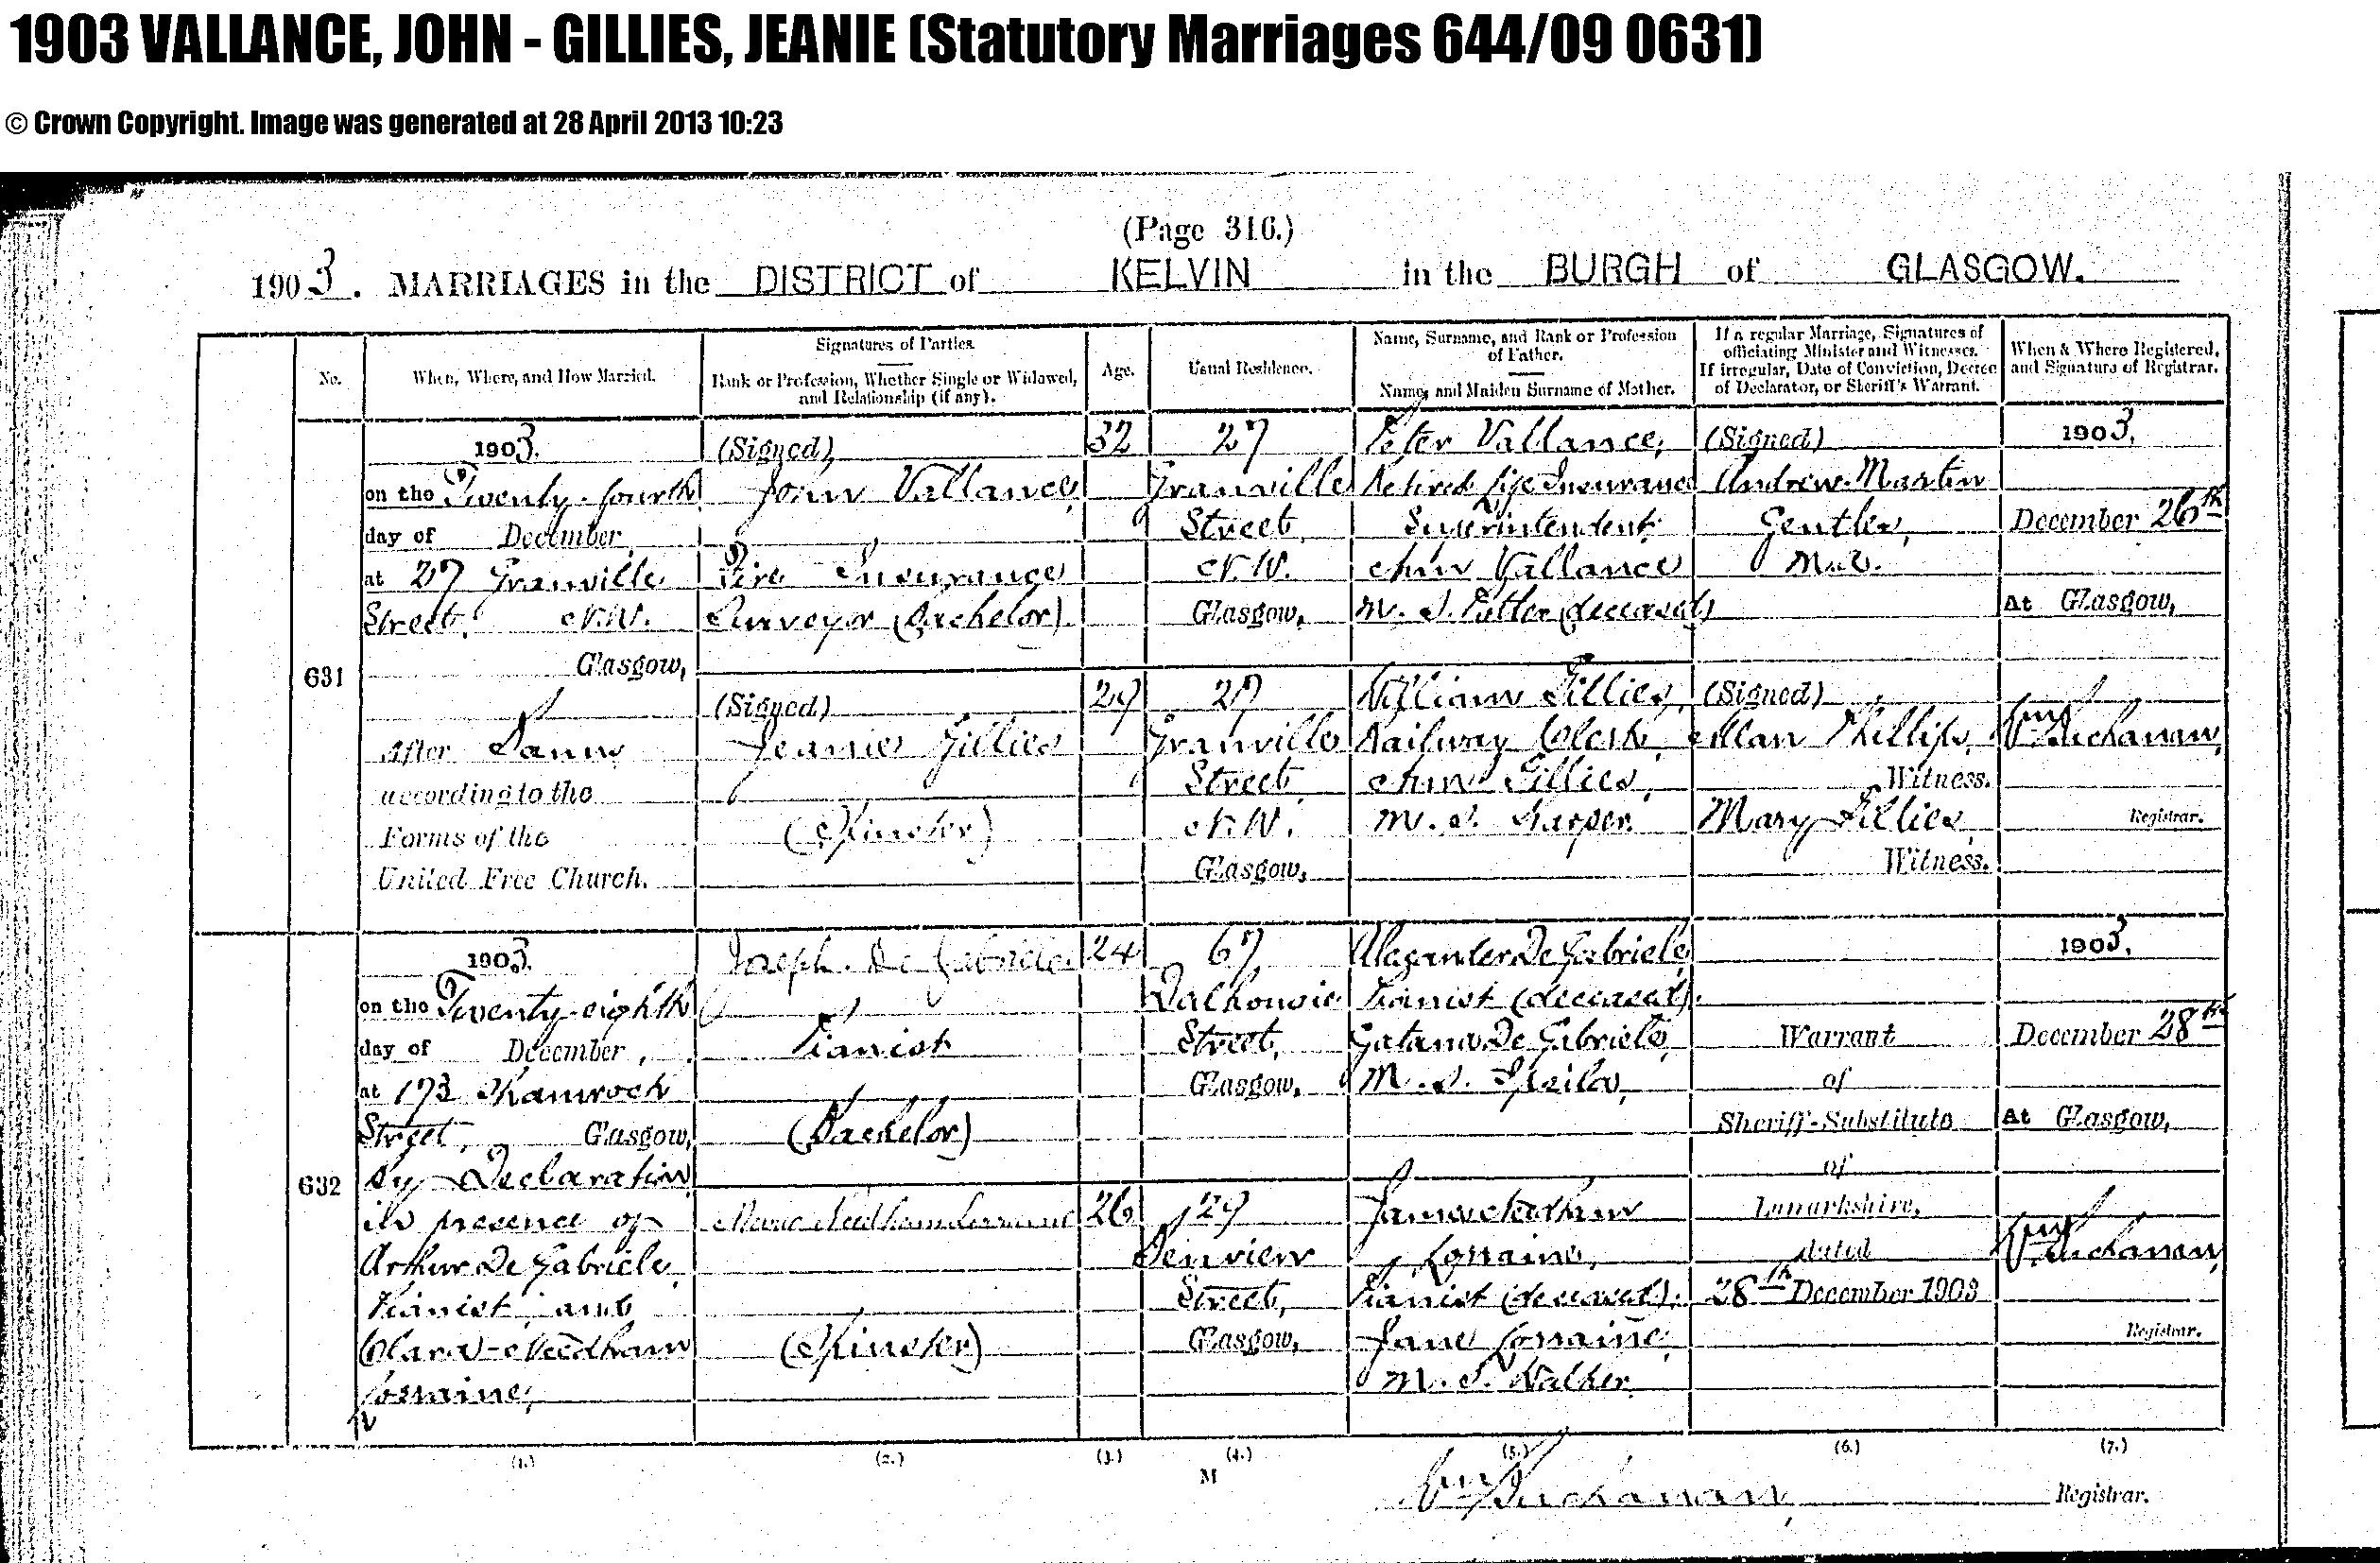 1903 VALLANCE, JOHN - GILLIES, JEANIE (Statutory Marriages 644/09 0631)
© Crown Copyright. Image was generated at 28 April 2013 10:23
(Page 316.)
1903. MARRIAGES in the DISTRICT of KELVIN in the BURGH of GLASGOW.
No.
When, Where, and How Married.
Signatures of Parties.
Rank or Profession, Whether Single or Widowed,
and Relationship (if any).
Age.
Usual Residence.
Name, Surname, and Rank or Profession
of Father.
Name, and Maiden Surname of Mother.
If a regular Marriage, Signatures of
officiating Minister and Witnesses.
If irregular, Date of Conviction, Decree
of Declarator, or Sheriff's Warrant.
When & Where Registered,
and Signature of Registrar.
631
1903.
on the Twenty-fourth
day of December
at 27 Granville
Street, N.W.
Glasgow,
After Banns
according to the
Forms of the
United Free Church.
(Signed)
John Vallance
Fire Insurance
Surveyor (Bachelor)
(Signed)
Jeanie Gillies
(Spinster)
32
29
27
Granville
Street
N.W.
Glasgow,
27
Granville
Street
N.W.
Glasgow,
Peter Vallance,
Retired Life Insurance
Superintendent
Ann Vallance
M.S. (deceased)
William Gillies,
Railway Clerk,
Ann Gillies,
M.S. Harper.
(Signed)
Andrew Martin
Gentles,
M.A.
(Signed)
Allan Phillips,
Witness.
Mary Gillies,
Witness.
1903.
December 26th
At Glasgow,
Wm Buchanan,
Registrar.
632
1903.
on the Twenty-eighth
day of December,
at 173 Shamrock
Street, Glasgow,
By Declaration
in presence of
Arthur De Gabriele,
Pianist, and
Clara Needham
Lorraine,
Joseph De Gabriele
Pianist
(Bachelor)
Needham Lorraine
(Spinster)
24
26
67
Dalhousie
Street,
Glasgow,
29
Street,
Glasgow,
Alexander De Gabriele,
Pianist (deceased).
De Gabriele,
M.S.
James Needham
Lorraine,
Pianist (deceased).
Jane Lorraine,
M.S. Walker.
Warrant
of
Sheriff-Substitute
of
Lanarkshire,
dated
28th December 1903
1903.
December 28th
At Glasgow,
Wm Buchanan,
Registrar.
(1.) (2.) (3.) (4.) (5.) (6.) (7.)
M
Wm Buchanan, Registrar.